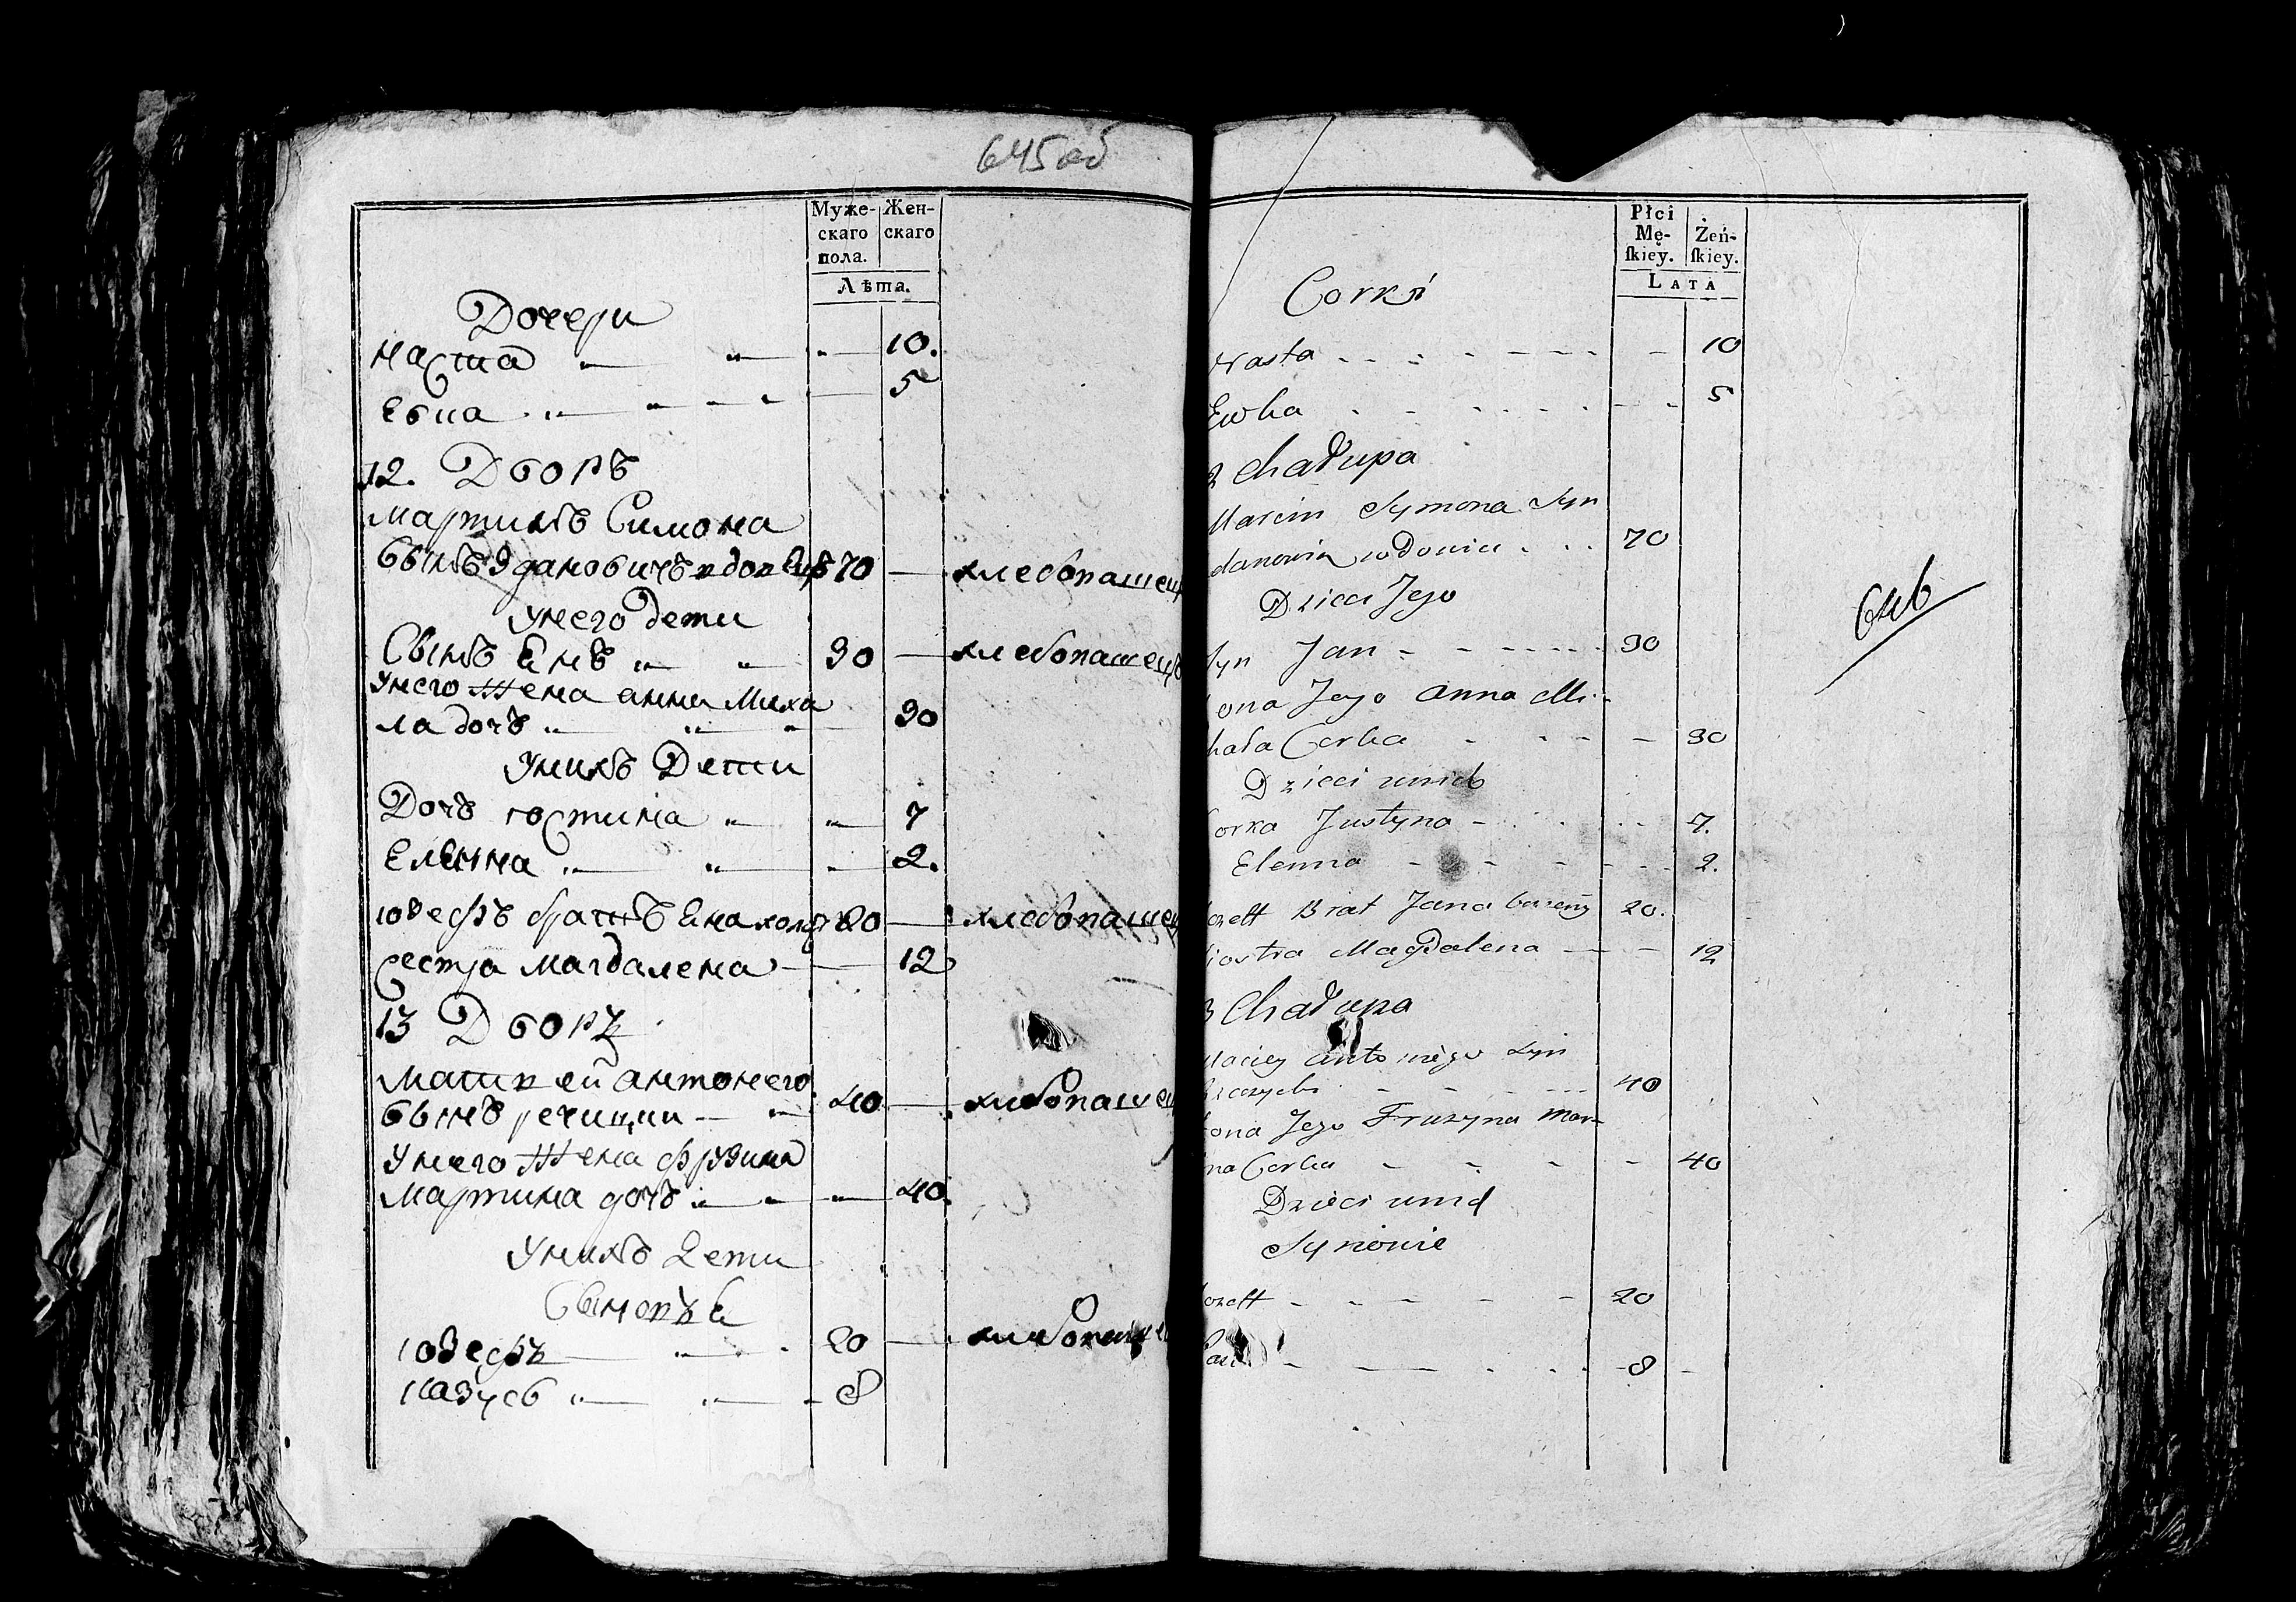 645 об
Муже-
скаго
пола.
Жен-
скаго
Лѣта.
Дочери
Наста 10.
Евка 5
12. Дворъ
Мартинъ Симона
Сынъ Ждановичъ вдовецъ 70 — хлебопашец
Унего дети
Сынъ Янъ 30 — хлебопашецъ
Унего жена анна Миха
ла дочъ 30
Унихъ Дети
Дочъ юстина 7
Елена 2.
юзефъ братъ Яна холост 20 — хлебопашец
сестра Магдалена 12
13 Дворъ
Матвей антонего
Сынъ речицки 40 — хлебопаше
Унего жена фрузина
Мартина дочъ 40.
Унихъ дети
Сыновья
юзефъ 20 — хлебопаше
Казусь 8
Płci
Mę-
ſkiey.
Żeń-
ſkiey.
LATA
Corki
Nasta 10
Ewka 5
2 Chałupa
Marcin Symona Syn
danowicz wdowiec 70
Dzieci Jego
Syn Jan 30
ona Jego Anna Mi-
hała Corka 30
Dzieci unich
orka Justyna 7.
Elenna 2.
ozeff Brat Jana 20.
iostra Magdalena 12
3 Chałupa
Maciey Antoniego Syn
40
ona Jego Fruzyna Mar-
na Corka 40
Dzieci unich
Synowie
ozeff 20
8
646